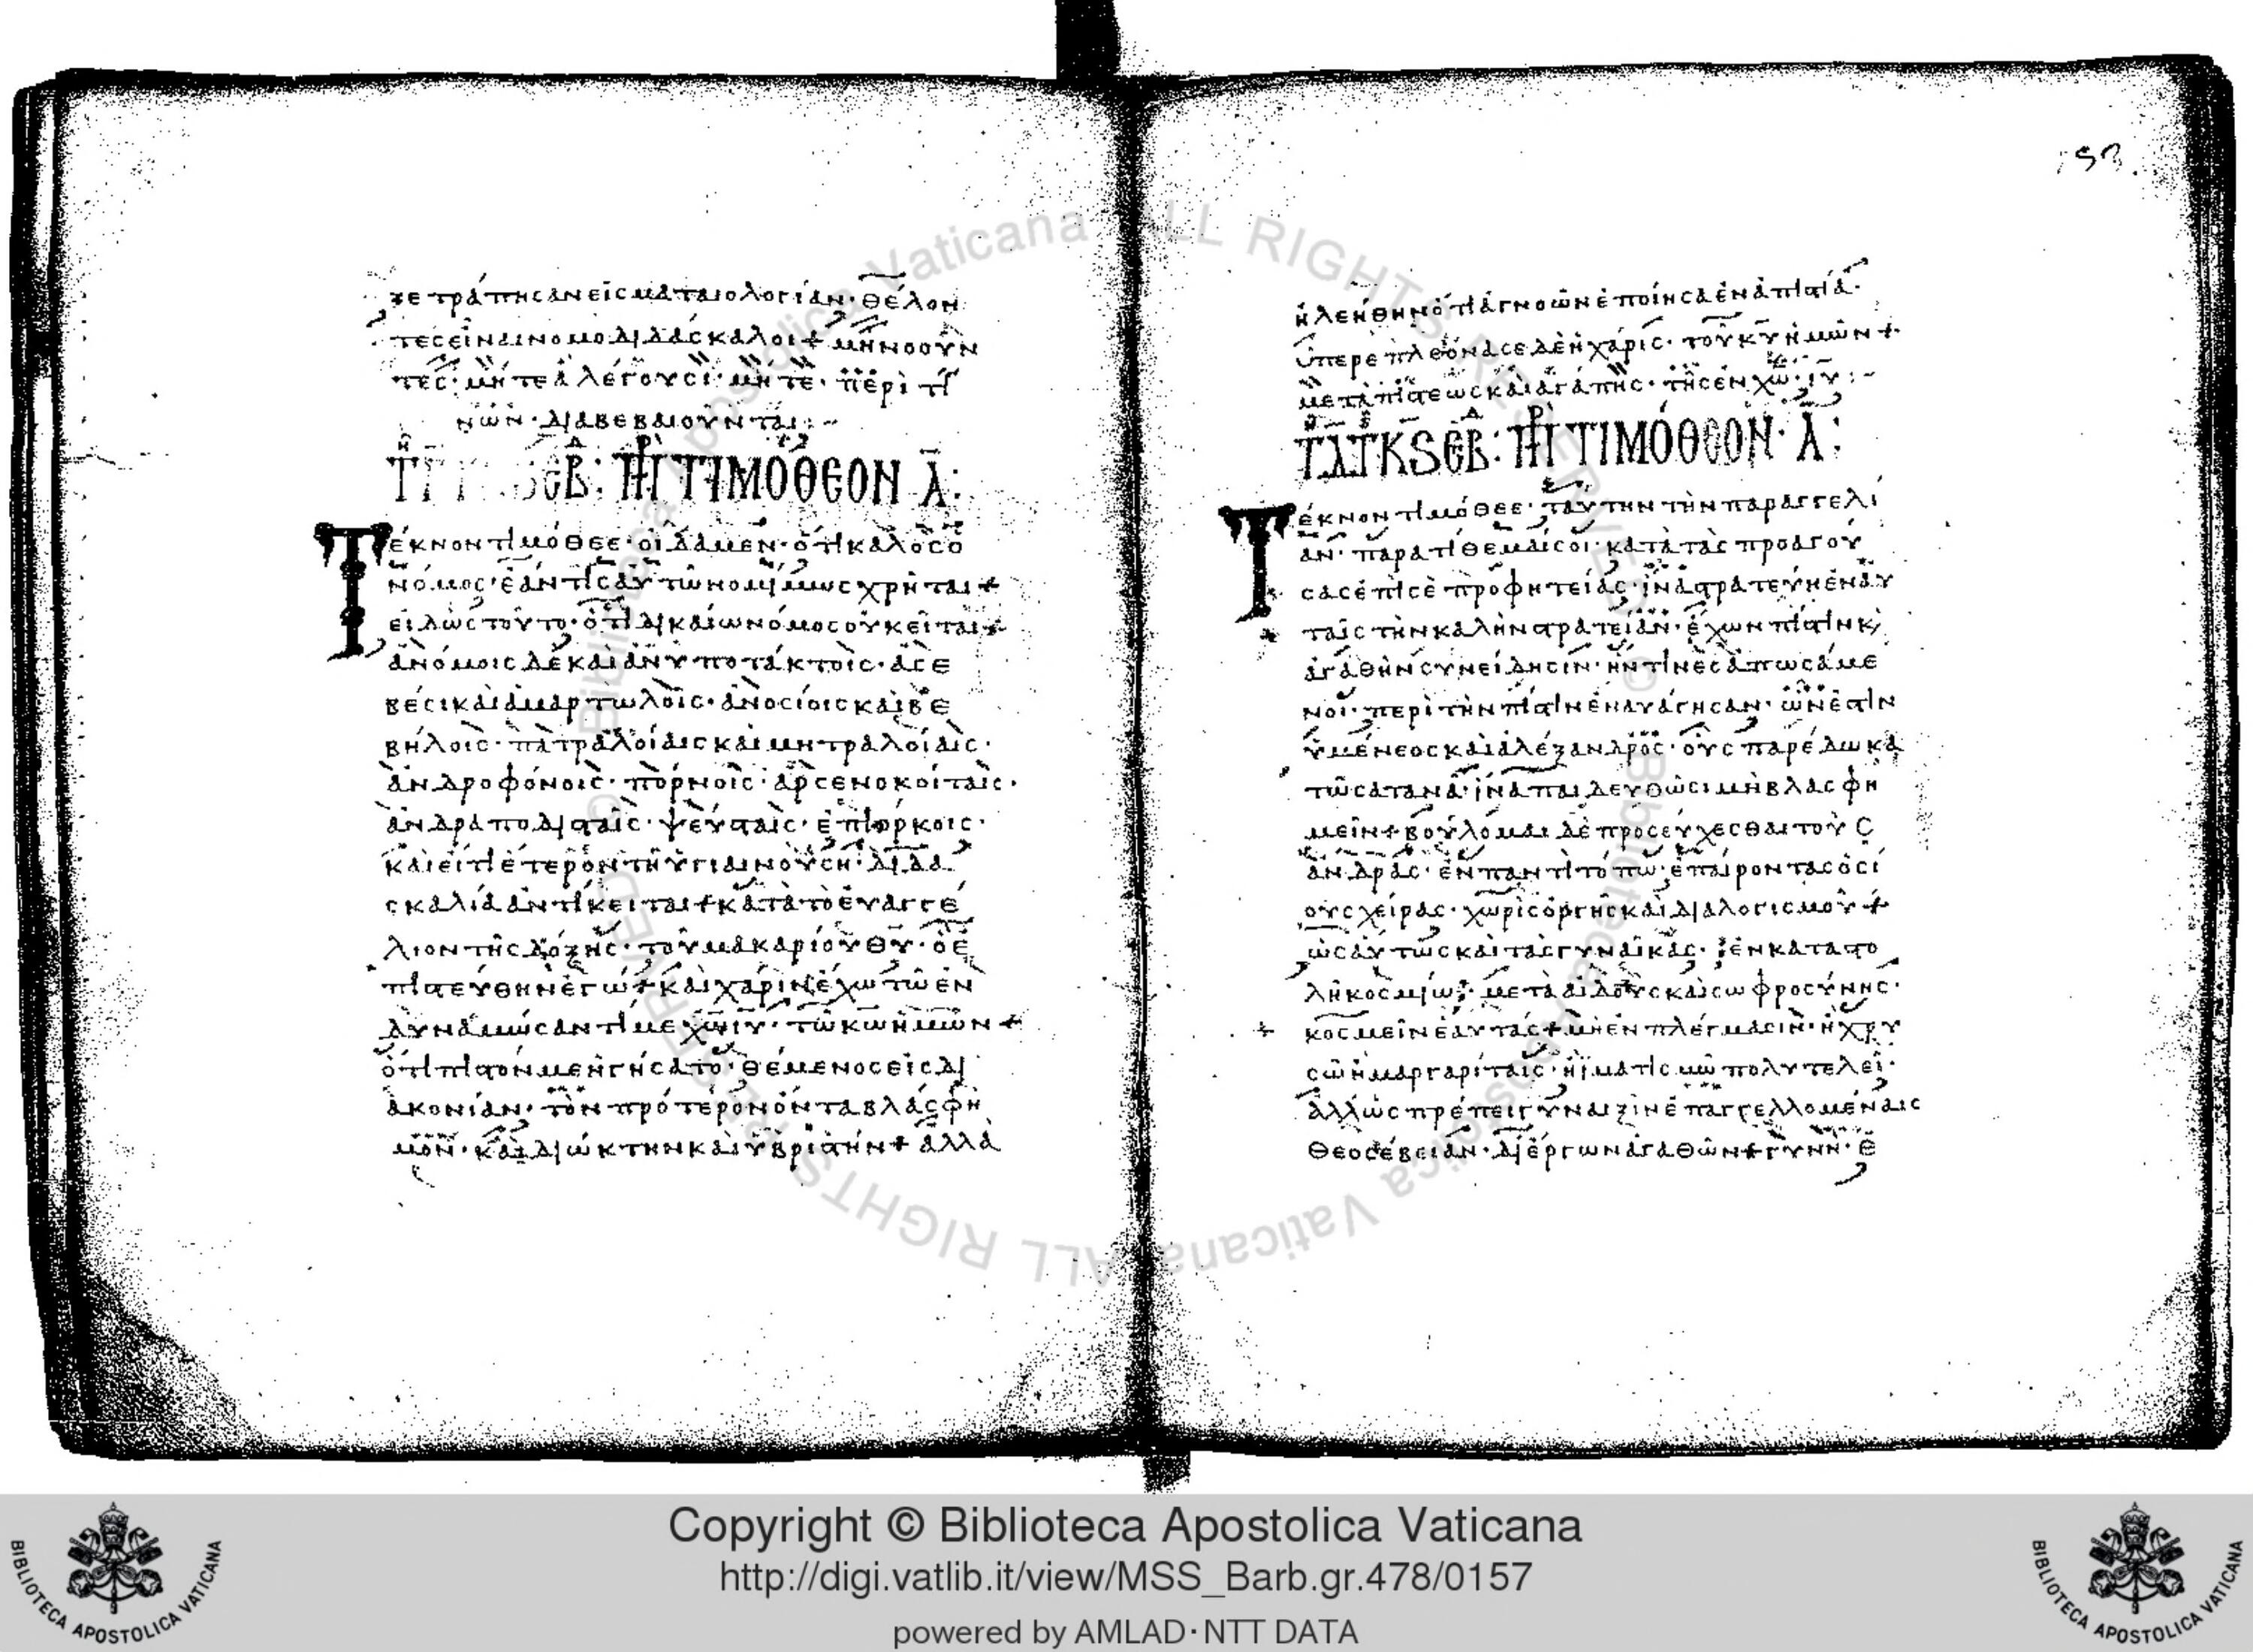 ξετράπησαν εἰς ματαιολογίαν· θέλον
τες εἶναι νομοδιδάσκαλοι + μὴ νοοῦν
τες· μήτε ἃ λέγουσι· μήτε· περὶ τί
νων· διαβεβαιοῦνται:-
ΠΡ ΤΙΜΌΘΕΟΝ Α:
Τέκνον τιμόθεε· οἴδαμεν· ὅτι καλὸς ὁ
νόμος· ἐάν τις αὐτῶ νομίμως χρῆται +
εἰδὼς τοῦτο· ὅτι δικαίω νόμος οὐ κεῖται +
ἀνόμοις δὲ καὶ ἀνυποτάκτοις· ἀσε
βέσι καὶ ἁμαρτωλοῖς· ἀνοσίοις καὶ βε
βήλοις· πατραλοίαις καὶ μητραλοίαις·
ἀνδροφόνοις· πόρνοις· ἀρσενοκοίταις·
ἀνδραποδισταῖς· ψεύσταις· ἐπιόρκοις·
καὶ εἴ τι ἕτερον τῆ ὑγιαινούση· διδα
σκαλία ἀντίκειται + κατὰ τὸ εὐαγγέ
λιον τῆς δόξης· τοῦ μακαρίου θυ· ὃ ἐ
πιστεύθην ἐγώ + καὶ χάριν ἔχω τῶ ἐν
δυναμώσαντί με χω ιυ· τῶ κω ἡμῶν +
ὅτι πιστόν με ἡγήσατο· θέμενος εἰς δι
ακονίαν· τὸν πρότερον ὄντα βλάσφη
μον· καὶ διώκτην καὶ ὑβριστήν + ἀλλὰ
ἠλεήθην ὅτι ἀγνοῶν ἐποίησα ἐν ἀπιστία·
ὑπερεπλεόνασε δὲ ἡ χάρις· τοῦ κυ ἡμῶν +
μετὰ πίστεως καὶ ἀγάπης· τῆς ἐν χω· ιυ:-
ΠΡ ΤΙΜΌΘΕΟΝ· Α:
Τέκνον τιμόθεε· ταύτην τὴν παραγγελί
αν· παρατίθεμαί σοι· κατὰ τὰς προαγού
σας ἐπί σε προφητείας· ἵνα στρατεύη ἐν αὐ
ταῖς τὴν καλὴν στρατείαν· ἔχων πίστιν κ,
ἀγαθὴν συνείδησιν· ἥν τινες ἀπωσάμε
νοι· περὶ τὴν πίστιν ἐναυάγησαν· ὧν ἐστὶν
ὑμένεος καὶ ἀλέξανδρος· οὓς παρέδωκα
τῶ σατανᾶ· ἵνα παιδευθῶσι μὴ βλασφη
μεῖν + βούλομαι δὲ προσεύχεσθαι τοὺς
ἄνδρας· ἐν παντὶ τόπω· ἐπαίροντας ὁσί
ους χεῖρας· χωρὶς ὀργῆς καὶ διαλογισμοῦ +
ὡσαύτως καὶ τὰς γυναῖκας· ἐν καταστο
λῆ κοσμίω· μετὰ αἰδοῦς καὶ σωφροσύνης·
κοσμεῖν ἑαυτάς + μὴ ἐν πλέγμασιν· ἢ χρυ
σῶ ἢ μαργαρίταις· ἢ ἱματισμῶ πολυτελεῖ·
ἀλλ' ὡς πρέπει γυναιξὶν ἐπαγγελλομέναις
θεοσέβειαν· δι ἔργων ἀγαθῶν + γυνὴ· ἐ
Copyright © Biblioteca Apostolica Vaticana
http://digi.vatlib.it/view/MSS_Barb.gr.478/0157
powered by AMLAD·NTT DATA
BIBLIOTECA APOSTOLICA VATICANA
BIBLIOTECA APOSTOLICA VATICANA